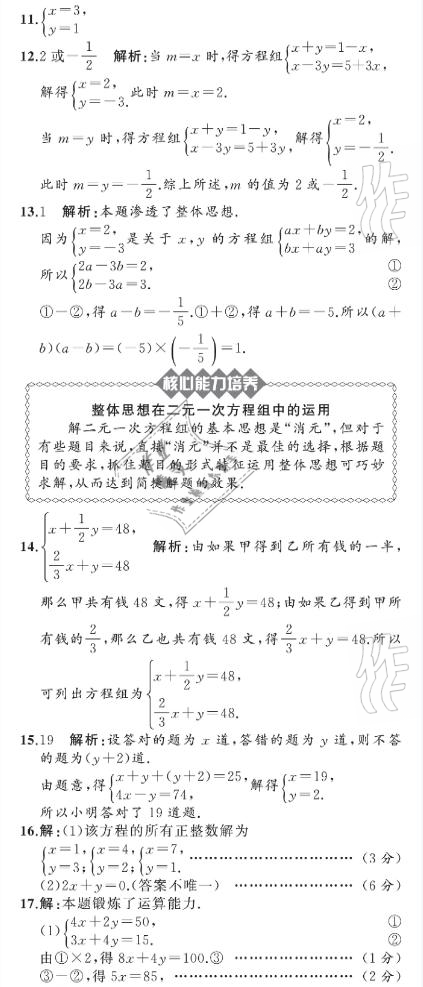 11.{x=3, y=1
12.2或-1/2 解析:当m=x时,得方程组{x+y=1-x, x-3y=5+3x,
解得{x=2, y=-3. 此时m=x=2.
当m=y时,得方程组{x+y=1-y, x-3y=5+3y, 解得{x=2, y=-1/2.
此时m=y=-1/2.综上所述,m的值为2或-1/2.
13.1 解析:本题渗透了整体思想.
因为{x=2, y=-3是关于x,y的方程组{ax+by=2, bx+ay=3的解,
所以{2a-3b=2, ① 2b-3a=3. ②
①-②,得a-b=-1/5.①+②,得a+b=-5.所以(a+
b)(a-b)=(-5)×(-1/5)=1.
核心能力培养
整体思想在二元一次方程组中的运用
解二元一次方程组的基本思想是“消元”,但对于
有些题目来说,直接“消元”并不是最佳的选择,根据题
目的要求,抓住题目的形式特征运用整体思想可巧妙
求解,从而达到简捷解题的效果.
14.{x+1/2y=48, 2/3x+y=48 解析:由如果甲得到乙所有钱的一半,
那么甲共有钱48文,得x+1/2y=48;由如果乙得到甲所
有钱的2/3,那么乙也共有钱48文,得2/3x+y=48.所以
可列出方程组为{x+1/2y=48, 2/3x+y=48.
15.19 解析:设答对的题为x道,答错的题为y道,则不答
的题为(y+2)道.
由题意,得{x+y+(y+2)=25, 4x-y=74, 解得{x=19, y=2.
所以小明答对了19道题.
16.解:(1)该方程的所有正整数解为
{x=1, y=3;{x=4, y=2;{x=7, y=1. ……………………………(3分)
(2)2x+y=0.(答案不唯一) ……………………(6分)
17.解:本题锻炼了运算能力.
(1){4x+2y=50, ① 3x+4y=15. ②
由①×2,得8x+4y=100.③ ……………………(1分)
③-②,得5x=85, ……………………………(2分)